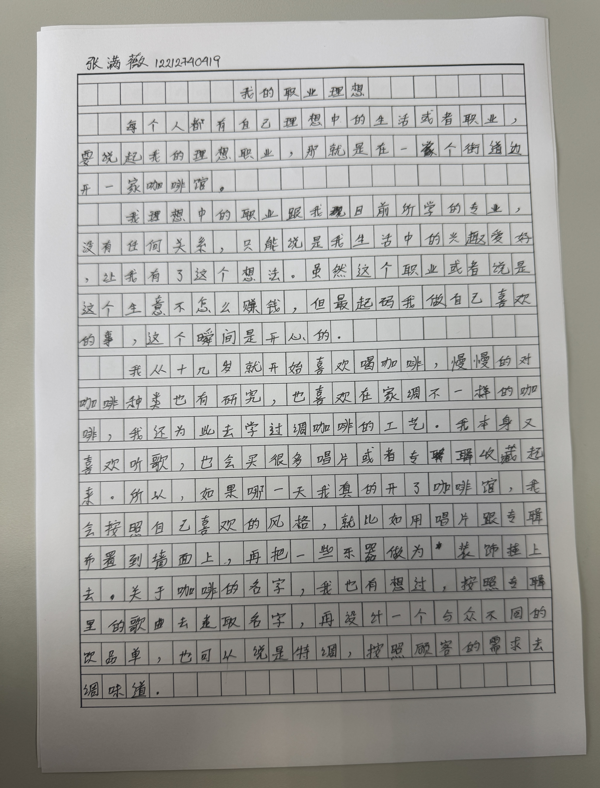 张满薇 12212740419
我的职业理想
每个人都有自己理想中的生活或者职业，
要说起我的理想职业，那就是在一个街道边
开一家咖啡馆。
我理想中的职业跟我目前所学的专业，
没有任何关系，只能说是我生活中的兴趣爱好
，让我有了这个想法。虽然这个职业或者说是
这个生意不怎么赚钱，但最起码我做自己喜欢
的事，这个瞬间是开心的。
我从十几岁就开始喜欢喝咖啡，慢慢的对
咖啡种类也有研究，也喜欢在家绸不一样的咖
啡，我还为此去学过绸咖啡的工艺。我本身又
喜欢听歌，也会买很多唱片或者专辑收藏起
来。所以，如果哪一天我真的开了咖啡馆，我
会按照自己喜欢的风格，就比如用唱片跟专辑
布置到墙面上，再把一些乐器做为装饰挂上
去。关于咖啡的名字，我也有想过，按照专辑
里的歌曲去选取名字，再设计一个与众不同的
饮品单，也可以说是特绸，按照顾客的需求去
绸味道。